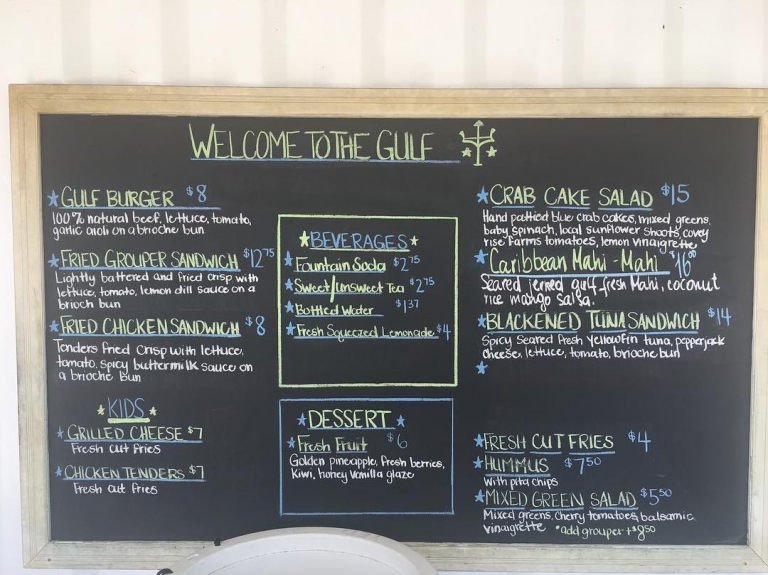 WELCOME TO THE GULF
GULF BURGER $8
100% natural beef, lettuce, tomato,
garlic aioli on a brioche bun
FRIED GROUPER SANDWICH $12.75
Lightly battered and fried crisp with
lettuce, tomato, lemon dill sauce on a
brioch bun
FRIED CHICKEN SANDWICH $8
Tenders fried crisp with lettuce,
tomato, spicy buttermilk sauce on
a brioche bun
KIDS
GRILLED CHEESE $7
Fresh cut fries
CHICKEN TENDERS $7
Fresh cut fries
BEVERAGES
Fountain Soda $2.75
Sweet/Unsweet Tea $2.75
Bottled Water $1.37
Fresh Squeezed Lemonade $4
DESSERT
Fresh Fruit $6
Golden pineapple, fresh berries,
kiwi, honey vanilla glaze
CRAB CAKE SALAD $15
Hand pattied blue crab cakes, mixed greens,
baby spinach, local sunflower shoots, covey
rise farms tomatoes, lemon vinaigrette
Caribbean Mahi-Mahi $16.00
Seared jerked gulf fresh Mahi, coconut
rice mango salsa.
BLACKENED TUNA SANDWICH $14
Spicy seared fresh yellowfin tuna, pepperjack
cheese, lettuce, tomato, brioche bun
FRESH CUT FRIES $4
HUMMUS $7.50
with pita chips
MIXED GREEN SALAD $5.50
Mixed greens, cherry tomatoes, balsamic
vinaigrette *add grouper +$8.50